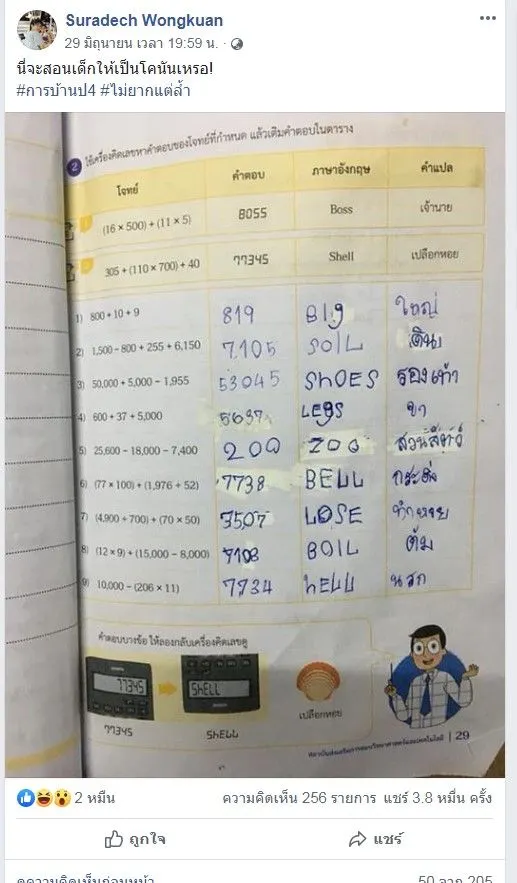 Suradech Wongkuan
29 มิถุนายน เวลา 19:59 น. ·
นี่จะสอนเด็กให้เป็นโคนันเหรอ!
#การบ้านป4 #ไม่ยากแต่ล้ำ
2 ใช้เครื่องคิดเลขหาคำตอบของโจทย์ที่กำหนด แล้วเติมคำตอบในตาราง
โจทย์ คำตอบ ภาษาอังกฤษ คำแปล
(16 × 500) + (11 × 5) 8055 Boss เจ้านาย
305 + (110 × 700) + 40 77345 Shell เปลือกหอย
1) 800 + 10 + 9 819 BIg ใหญ่
2) 1,500 - 800 + 255 + 6,150 7,105 SOIL ดิน
3) 50,000 + 5,000 - 1,955 53045 ShOES รองเท้า
4) 600 + 37 + 5,000 5637 LEgS ขา
5) 25,600 - 18,000 - 7,400 200 ZOO สวนสัตว์
6) (77 × 100) + (1,976 + 52) 7738 BELL กระดิ่ง
7) (4,900 + 700) + (70 × 50) 3507 LOSE ทำหาย
8) (12 × 9) + (15,000 - 8,000) 7108 BOIL ต้ม
9) 10,000 - (206 × 11) 7734 hELL นรก
คำตอบบางข้อ ให้ลองกลับเครื่องคิดเลขดู
77345 ShELL
77345 ShELL เปลือกหอย
สถาบันส่งเสริมการสอนวิทยาศาสตร์และเทคโนโลยี | 29
2 หมื่น ความคิดเห็น 256 รายการ แชร์ 3.8 หมื่น ครั้ง
ถูกใจ แชร์
ดูความคิดเห็นก่อนหน้า 50 จาก 205